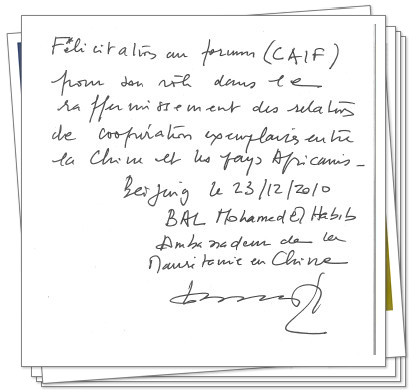 Félicitations au forum (CAIF)
pour son rôle dans le
raffermissement des relations
de coopération exemplaires entre
la Chine et les pays Africains -
Beijing le 23/12/2010
BAL Mohamed El Habib
Ambassadeur de la
Mauritanie en Chine